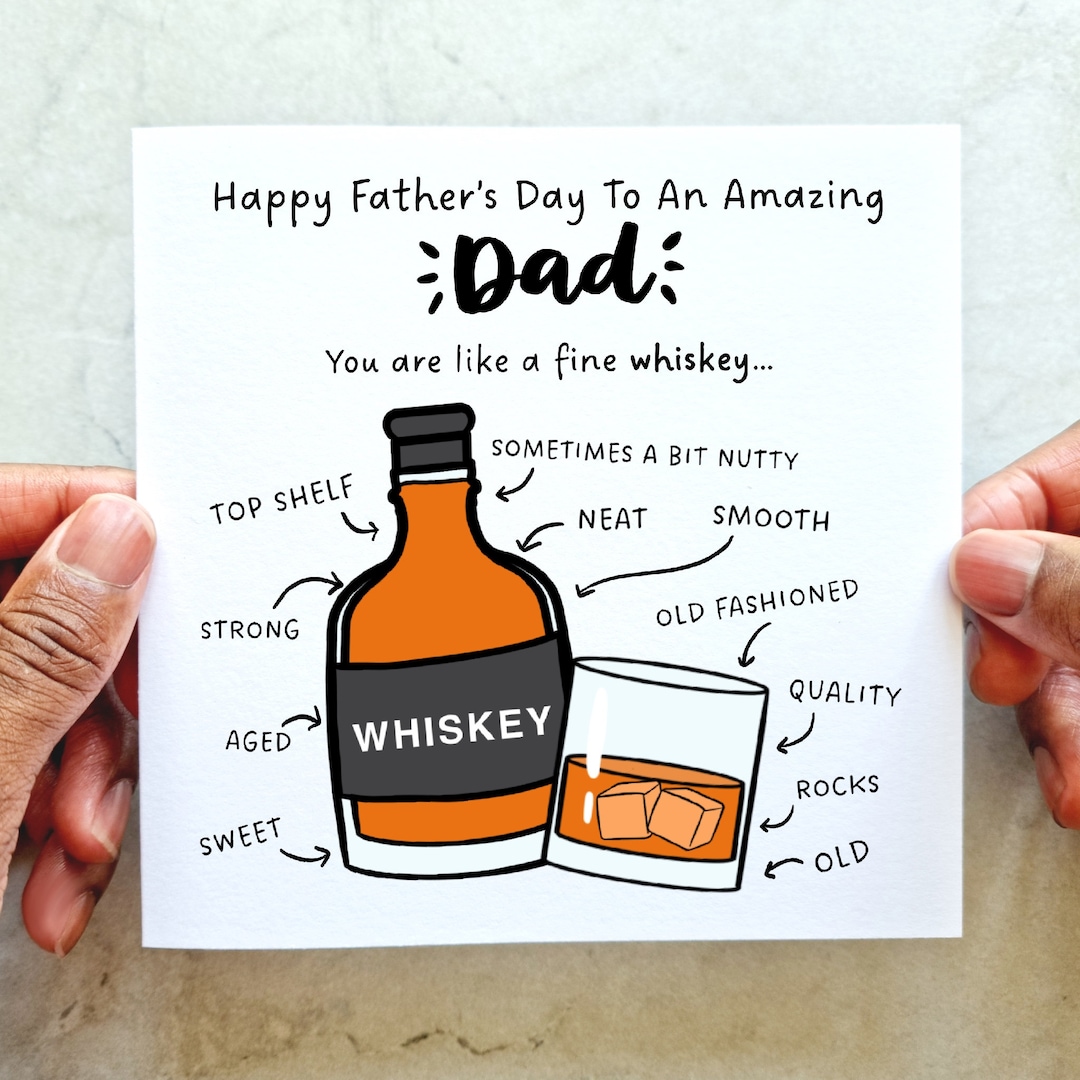 Happy Father's Day To An Amazing
Dad
You are like a fine whiskey...
SOMETIMES A BIT NUTTY
TOP SHELF
NEAT
SMOOTH
STRONG
OLD FASHIONED
AGED
WHISKEY
QUALITY
ROCKS
SWEET
OLD